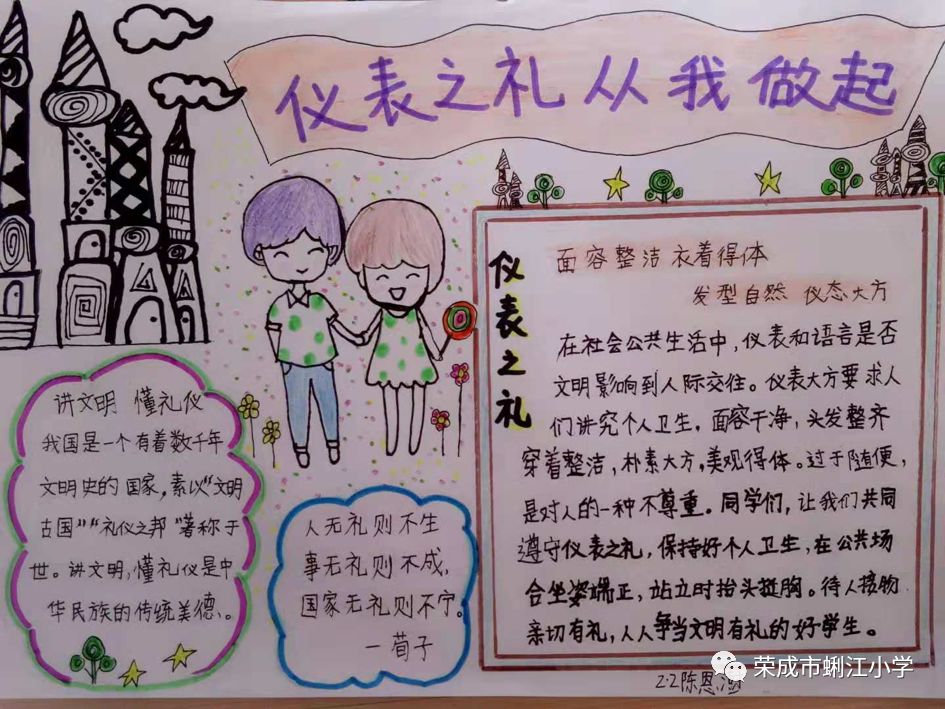 仪表之礼从我做起
仪表之礼
面容整洁 衣着得体
发型自然 仪态大方
在社会公共生活中，仪表和语言是否
文明影响到人际交往。仪表大方要求人
们讲究个人卫生，面容干净，头发整齐
穿着整洁，朴素大方，美观得体。过于随便，
是对人的一种不尊重。同学们，让我们共同
遵守仪表之礼，保持好个人卫生，在公共场
合坐姿端正，站立时抬头挺胸。待人接物
亲切有礼，人人争当文明有礼的好学生。
讲文明 懂礼仪
我国是一个有着数千年
文明史的国家，素以“文明
古国”“礼仪之邦”著称于
世。讲文明，懂礼仪是中
华民族的传统美德。
人无礼则不生
事无礼则不成，
国家无礼则不宁。
—荀子
2.2陈恩
荣成市蜊江小学